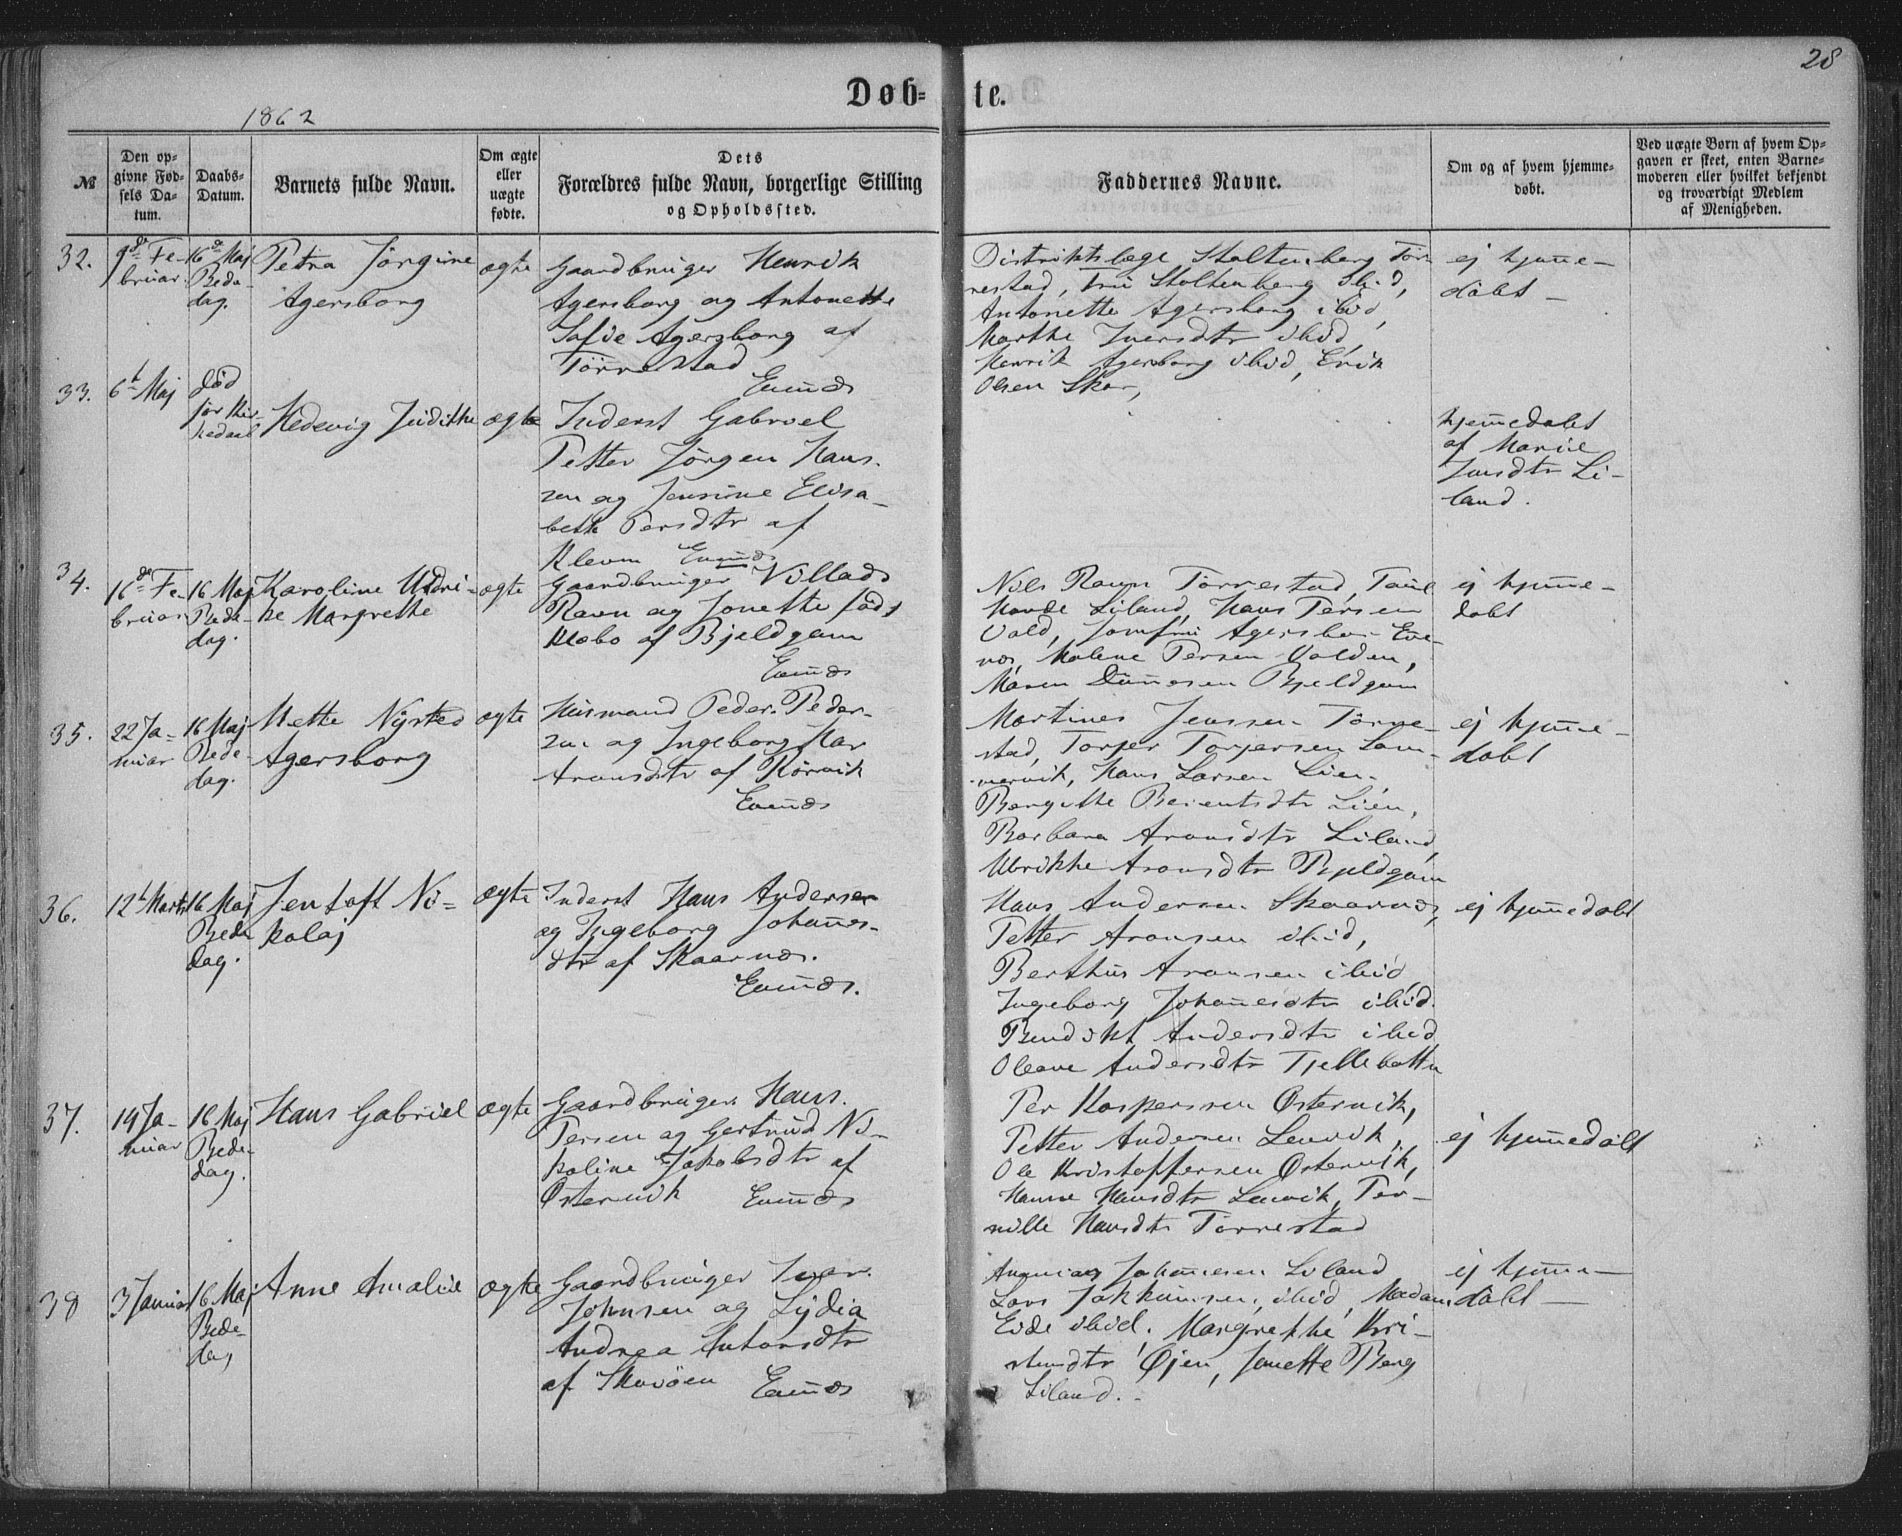 28
Døb-
te.
1862
№
Den op-
givne Fød-
sels Da-
tum.
Daabs-
Datum.
Barnets fulde Navn.
Om ægte
eller
uægte
fødte.
Dets
Forældres fulde Navn, borgerlige Stilling
og Opholdssted.
Faddernes Navne.
Om og af hvem hjemme-
døbt.
Ved uægte Børn af hvem Op-
gaven er skeet, enten Barne-
moderen eller hvilket bekjendt
og troværdigt Medlem
af Menigheden.
32.
9de Fe-
bruar.
16de Maj
Bede-
dag.
Petra Jørgine
Agersborg
ægte
Gaardbruger Henrik
Agersborg og Antonette
Sofie Agersborg af
Tørrestad
Evenæs
Distriktslæge Stoltenberg Tør-
restad, Fru Stoltenberg ibid,
Antonette Agersborg ibid,
Marthe Iversdtr ibid,
Henrik Agersborg ibid, Erik
Olsen Skar,
ej hjem̄e-
døbt –
33.
6t Maj
død
før Kir-
kedaab
Hedevig Judithe
ægte
Inderst Gabriel
Petter Jørgen Han-
sen og Jensine Elisa-
beth Persdtr af
Kleven Evenæs
hjem̄edøbt
af Marie
Jensdtr Li-
land.
34.
16de Fe-
bruar
16 Maj
Bede-
dag.
Karoline Uldri-
ke Margrethe
ægte
Gaardbruger Villads
Ravn og Jonette født
Klæbo af Bjeldgam
Evenæs
Nils Ravn Tørrestad,
Liland, Hans Persen
Vold, Jomfru Agersbor- Eve-
næs, Malene Persen Volden,
Maren Bjeldgam
ej hjem̄e-
døbt
35.
22 Ja-
nuar
16 Maj
Bede-
dag.
Mette Nysted
Agersborg
ægte
Husmand Peder Peder-
sen og Ingeborg Mar
Aronsdtr af Rørvik
Evenæs
Martines Jenssen Tørre-
stad, Torger Torgersen Lom-
mervik, Hans Larsen Lien,
Bergitte Berentsdtr Lien,
Barbara Aronsdtr Liland,
Ulrikke Aronsdtr Bjeldgam
ej hjem̄e-
døbt
36.
12t Marts
16 Maj
Bede-
dag.
Jentoft Ni-
kolaj
ægte
Inderst Hans Andersen
og Ingeborg Johan̄es-
dtr af Skaarnæs.
Evenæs.
Hans Andersen Skaarnæs,
Petter Aronsen ibid,
Berthus Aronsen ibid,
Ingeborg Johan̄esdtr ibid.
Bendikt Andersdtr ibid
Oleane Andersdtr Tjellebotten
ej hjem̄edøbt
37.
14 Ja-
nuar
16 Maj
Bede-
dag.
Hans Gabriel
ægte
Gaardbruger Hans
Persen og Gertrud Ni-
koline Jakobsdtr af
Østervik Evenæs
Per Kaspersen Østervik,
Petter Andersen Lenvik,
Ole Kristoffersen Østervik,
Hanne Hansdtr Lenvik, Per-
nille Hansdtr Tørrestad
ej hjem̄edøbt
38
3 Januar
16 Maj
Bede-
dag
Anne Amalie
ægte
Gaardbruger Iver
Johnsen og Lydia
Andrea Antonsdtr
af Skovøen Evenæs
Ananias Johan̄esen Liland
Lars Jakkumsen, ibid, Madam
Eide ibid, Margrethe Kri-
stensdtr Øjen, Jonette Berg
Liland. -
ej hjem̄e-
døbt –